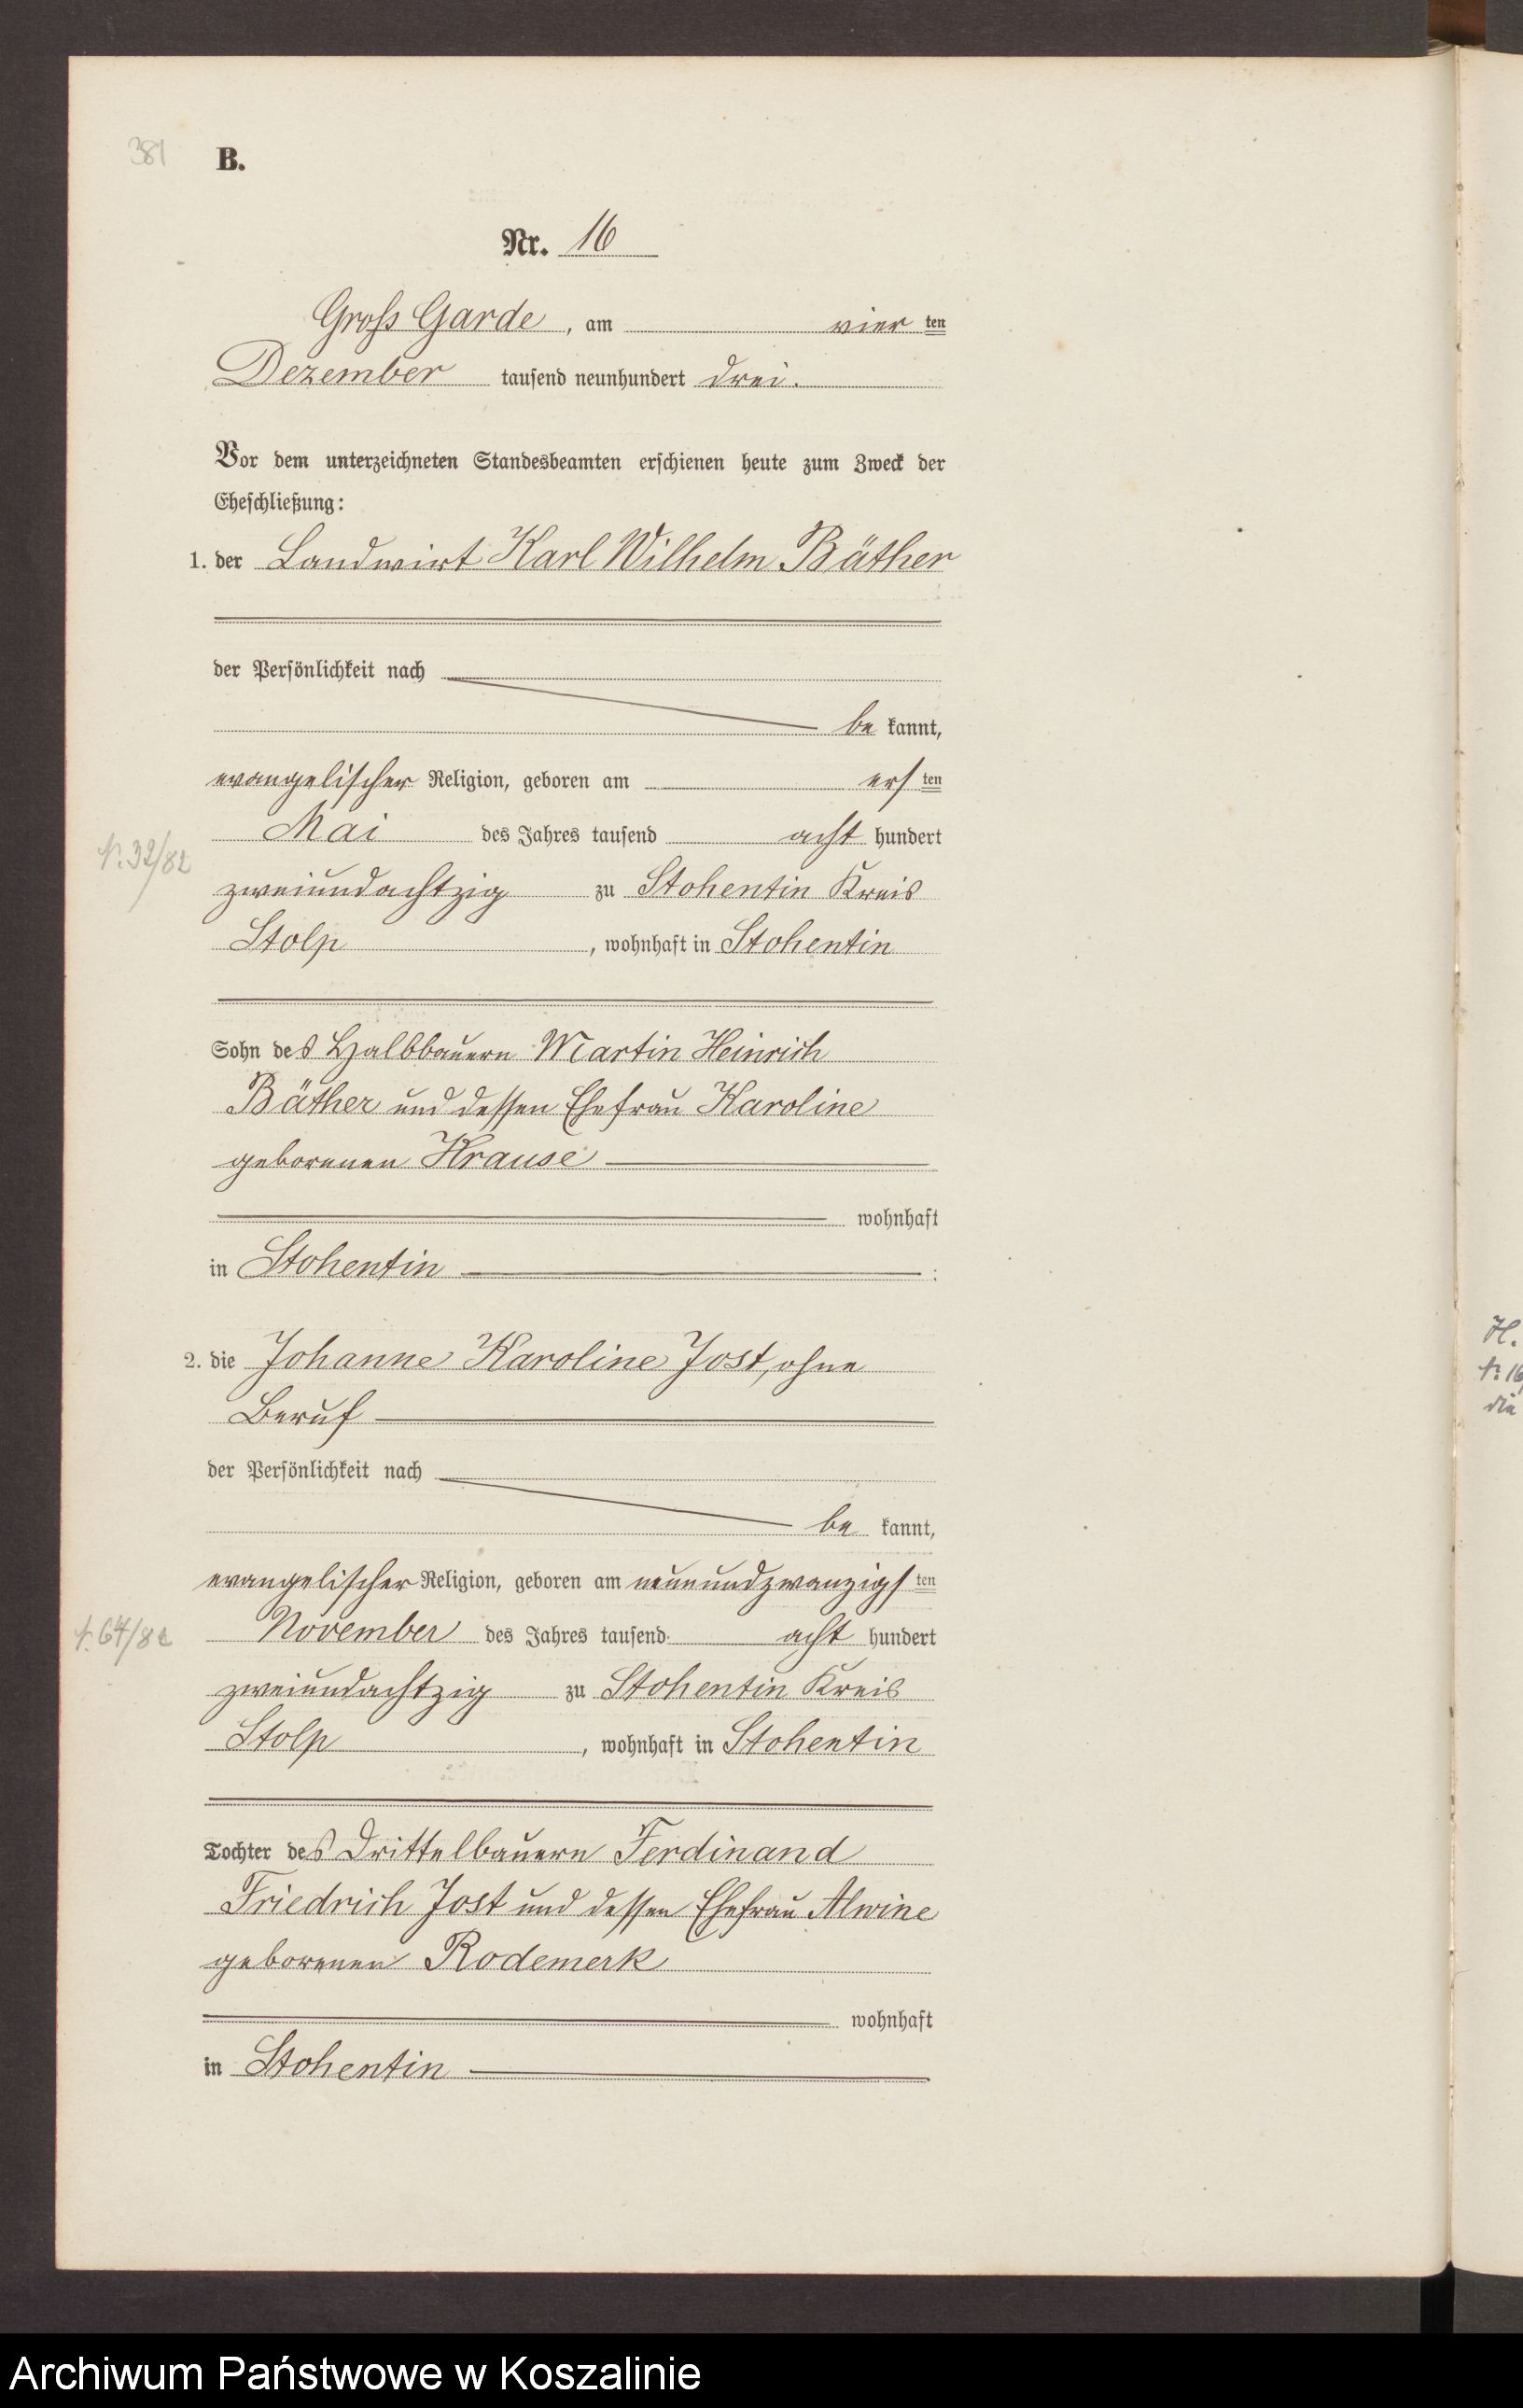 381
B.
Nr. 16
Gross Garde, am vier ten
Dezember tausend neunhundert drei.
Vor dem unterzeichneten Standesbeamten erschienen heute zum Zweck der
Eheschließung:
1. der Landwirt Karl Wilhelm Bäther
der Persönlichkeit nach
be kannt,
evangelischer Religion, geboren am ers ten
Mai des Jahres tausend acht hundert
N. 32/82
zweiundachtzig zu Stohentin Kreis
Stolp, wohnhaft in Stohentin
Sohn des Halbbauern Martin Heinrich
Bäther und dessen Ehefrau Karoline
geborenen Krause
wohnhaft
in Stohentin :
2. die Johanne Karoline Jost, ohne
Beruf
der Persönlichkeit nach
be kannt,
evangelischer Religion, geboren am neunundzwanzigs ten
November des Jahres tausend acht hundert
N. 64/82
zweiundachtzig zu Stohentin Kreis
Stolp, wohnhaft in Stohentin
Tochter des Drittelbauern Ferdinand
Friedrich Jost und dessen Ehefrau Alwine
geborenen Rodemerk
wohnhaft
in Stohentin
H.
N. 16
die
Archiwum Państwowe w Koszalinie